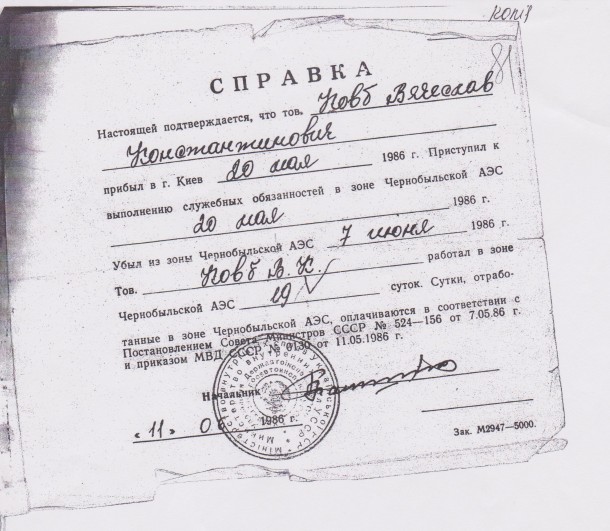 копія
81
СПРАВКА
Настоящей подтверждается, что тов. Ковб Вячеслав
Константинович
прибыл в г. Киев 20 мая 1986 г. Приступил к
выполнению служебных обязанностей в зоне Чернобыльской АЭС
20 мая 1986 г.
Убыл из зоны Чернобыльской АЭС 7 июня 1986 г.
Тов. Ковб В. К. работал в зоне
Чернобыльской АЭС 19 суток. Сутки, отрабо-
танные в зоне Чернобыльской АЭС, оплачиваются в соответствии с
Постановлением Совета Министров СССР № 524—156 от 7.05.86 г.
и приказом МВД СССР № 0130 от 11.05.1986 г.
Начальник
« 11 » 06 1986 г.
Зак. М2947—5000.